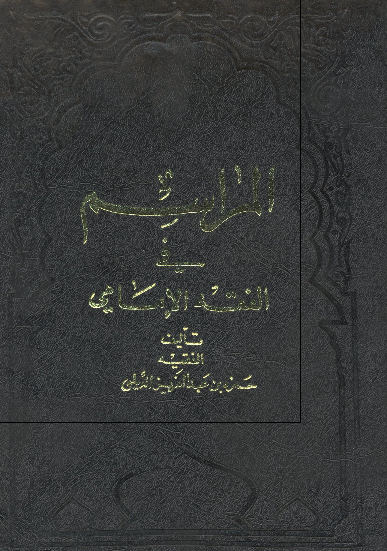 المراسيم
في
الفقه الإمامي
تأليف
الفقيه
حمزه بن عبد العزيز الديلمي